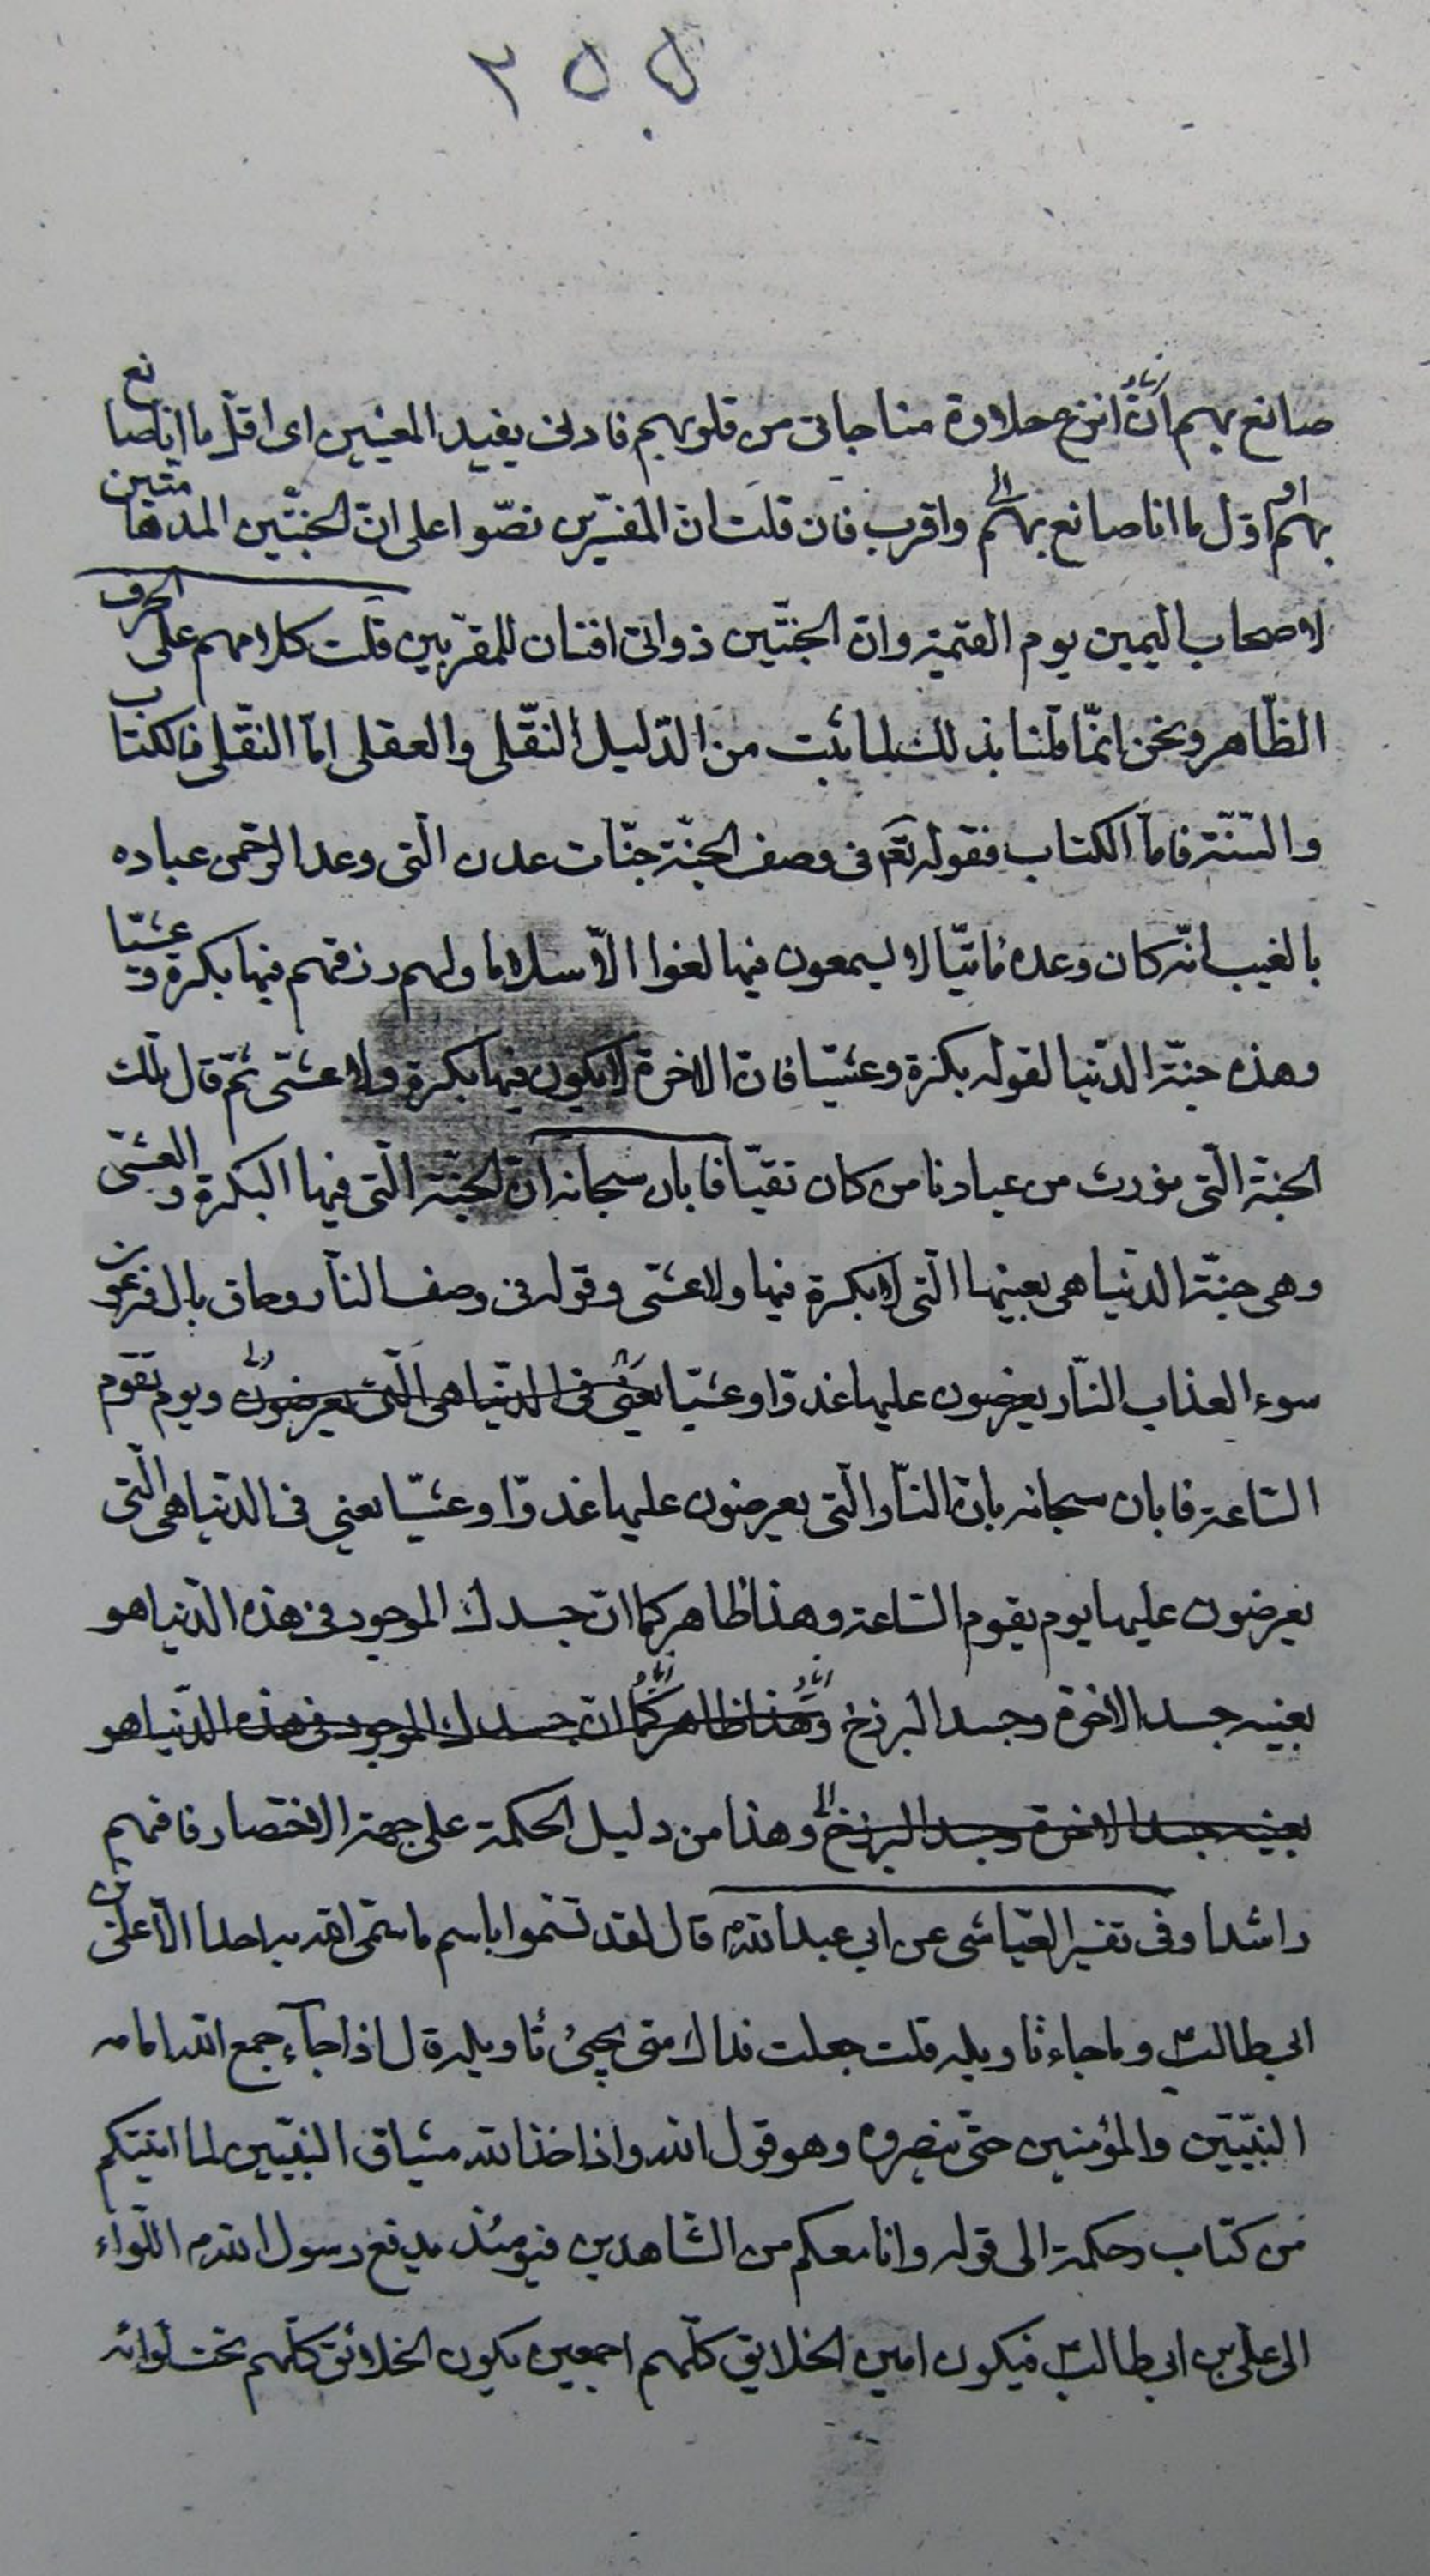 ٢٥٥
صانع بهم انّ انزع حلاوة مناجاتى من قلوبهم فادنى يفيد المعنيين اى اقلّ ما انا صانع
بهم او اوّل ما انا صانع بهم واقرب فان قلت انّ المفسّرين نصّوا على انّ الجنّتين المدهامّتين
لاصحاب اليمين يوم القيمة وانّ الجنّتين ذواتى افنان للمقرّبين قلت كلامهم على الحرف
الظّاهر ونحن انّما قلنا بذلك لما ثبت من الدّليل النّقلى والعقلى امّا النّقلى فالكتاب
والسّنّة فامّا الكتاب فقوله تعٓ فى وصف الجنّة جنّات عدن الّتى وعد الرّحمن عباده
بالغيب انّه كان وعده ماتيّا لا يسمعون فيها لغوا الّا سلاما ولهم رزقهم فيها بكرة وعشيّا
وهذه جنّة الدّنيا لقوله بكرة وعشيّا فانّ الاخرة لا يكون فيها بكرة ولا عشىّ ثمّ قال تلك
الجنّة الّتى نورث من عبادنا من كان تقيّا فابان سبحانه انّ الجنّة الّتى فيها البكرة والعشىّ
وهى جنّة الدنيا هى بعينها الّتى لا بكرة فيها ولا عشىّ وقوله فى وصف النّار وحاق بال فرعون
سوء العذاب النّار يعرضون عليها غدوّا وعشيّا يعنى فى الدّنيا هى الّتى يعرضون ويوم تقوم
السّاعة فابان سبحانه بانّ النّار الّتى يعرضون عليها غدوّا وعشيّا يعنى فى الدنيا هى الّتى
يعرضون عليها يوم يقوم السّاعة وهذا ظاهر كما انّ جسدك الموجود فى هذه الدّنيا هو
بعينه جسد الاخرة وجسد البرزخ وهذا ظاهر كما انّ جسدك الموجود فى هذه الدّنيا هو
بعينه جسد الاخرة وجسد البرزخ وهذا من دليل الحكمة على جهة الاختصار فافهم
راشدا وفى تفسير العيّاشى عن ابى عبد اللهؑ قال لقد تسّموا باسم ما سمّى الله به احدا الّا علىّ بن
ابى طالبؑ وما جاء تاويله قلت جعلت فداك متى يجيئ تاويله قال اذا جآء جمع الله امامه
النّبيّين والمؤمنين حتّى ينصروه وهو قول الله واذ اخذ الله ميثاق النبيّين لما اتيتكم
من كتاب وحكمة الى قوله وانا معكم من الشّاهدين فيومئذ يدفع رسول اللهص اللّواء
الى علىّ بن ابى طالبؑ فيكون امير الخلايق كلّهم اجمعين يكون الخلائق كلّهم تحت لوائه